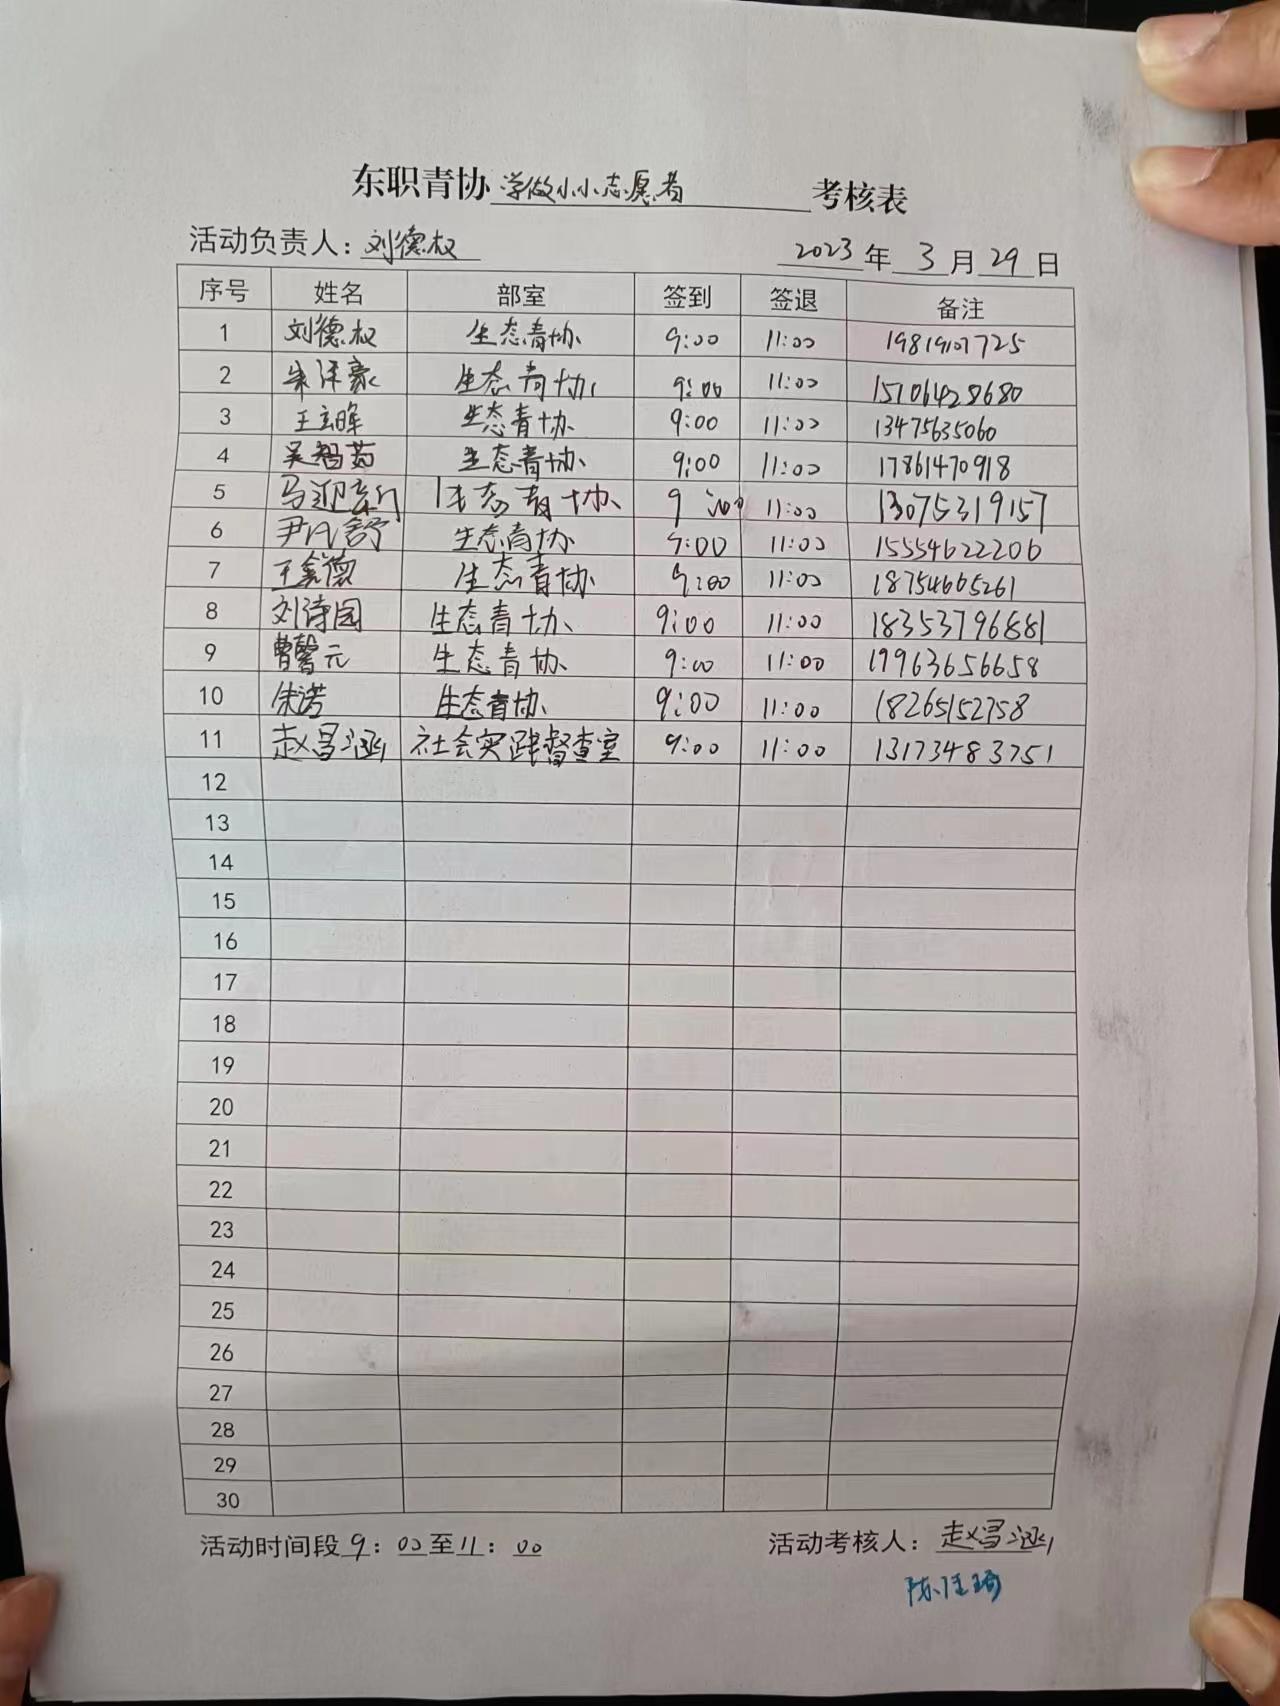 东职青协学做小小志愿者 考核表
活动负责人：刘德权 2023年3月29日
序号 姓名 部室 签到 签退 备注
1 刘德权 生态青协 9:00 11:00 19819101725
2 朱泽豪 生态青协 9:00 11:00 15106428680
3 王玄晖 生态青协 9:00 11:00 13475635060
4 吴智茹 生态青协 9:00 11:00 17861470918
5 马迎新 生态青协 9:00 11:00 13075319157
6 尹凡舒 生态青协 9:00 11:00 15554622206
7 王鑫德 生态青协 9:00 11:00 18754605261
8 刘诗园 生态青协 9:00 11:00 18353796881
9 曹馨元 生态青协 9:00 11:00 19963656658
10 朱诺 生态青协 9:00 11:00 18265152758
11 赵昌涵 社会实践督查室 9:00 11:00 13173483751
12
13
14
15
16
17
18
19
20
21
22
23
24
25
26
27
28
29
30
活动时间段9：00至11：00 活动考核人：赵昌涵
陈佳琦